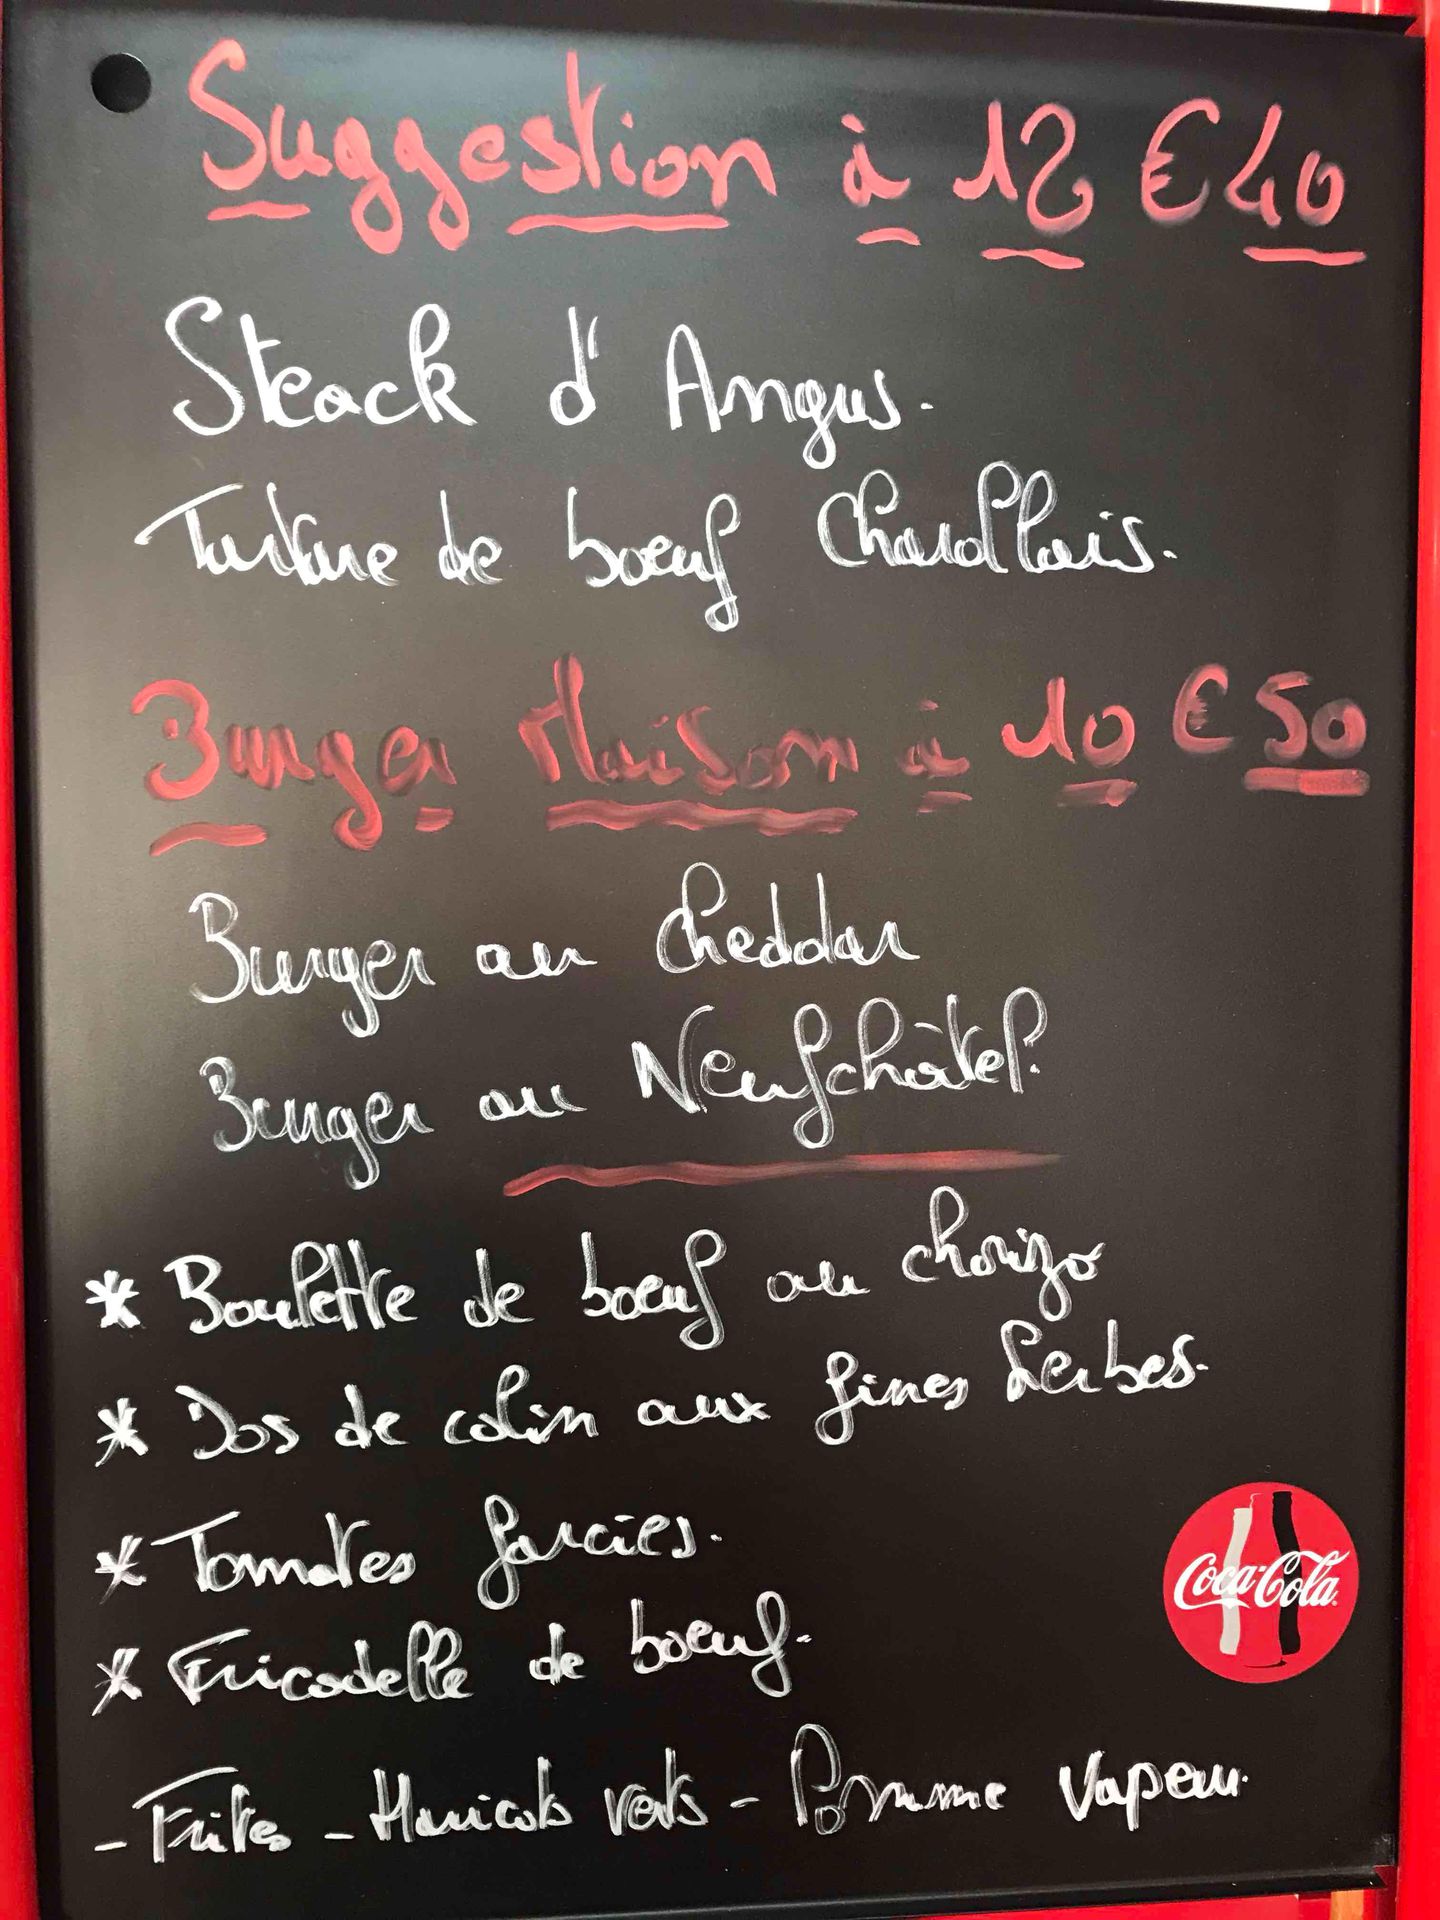 Suggestion à 12 € 40
Steack d'Angus.
Tartare de boeuf Charollais.
Burger Maison à 10 € 50
Burger au Cheddar
Burger au Neufchâtel.
* Boulette de boeuf au chorizo
* Dos de colin aux fines herbes.
* Tomates farcies.
* Fricadelle de boeuf.
- Frites - Haricots verts - Pomme Vapeur.
Coca-Cola